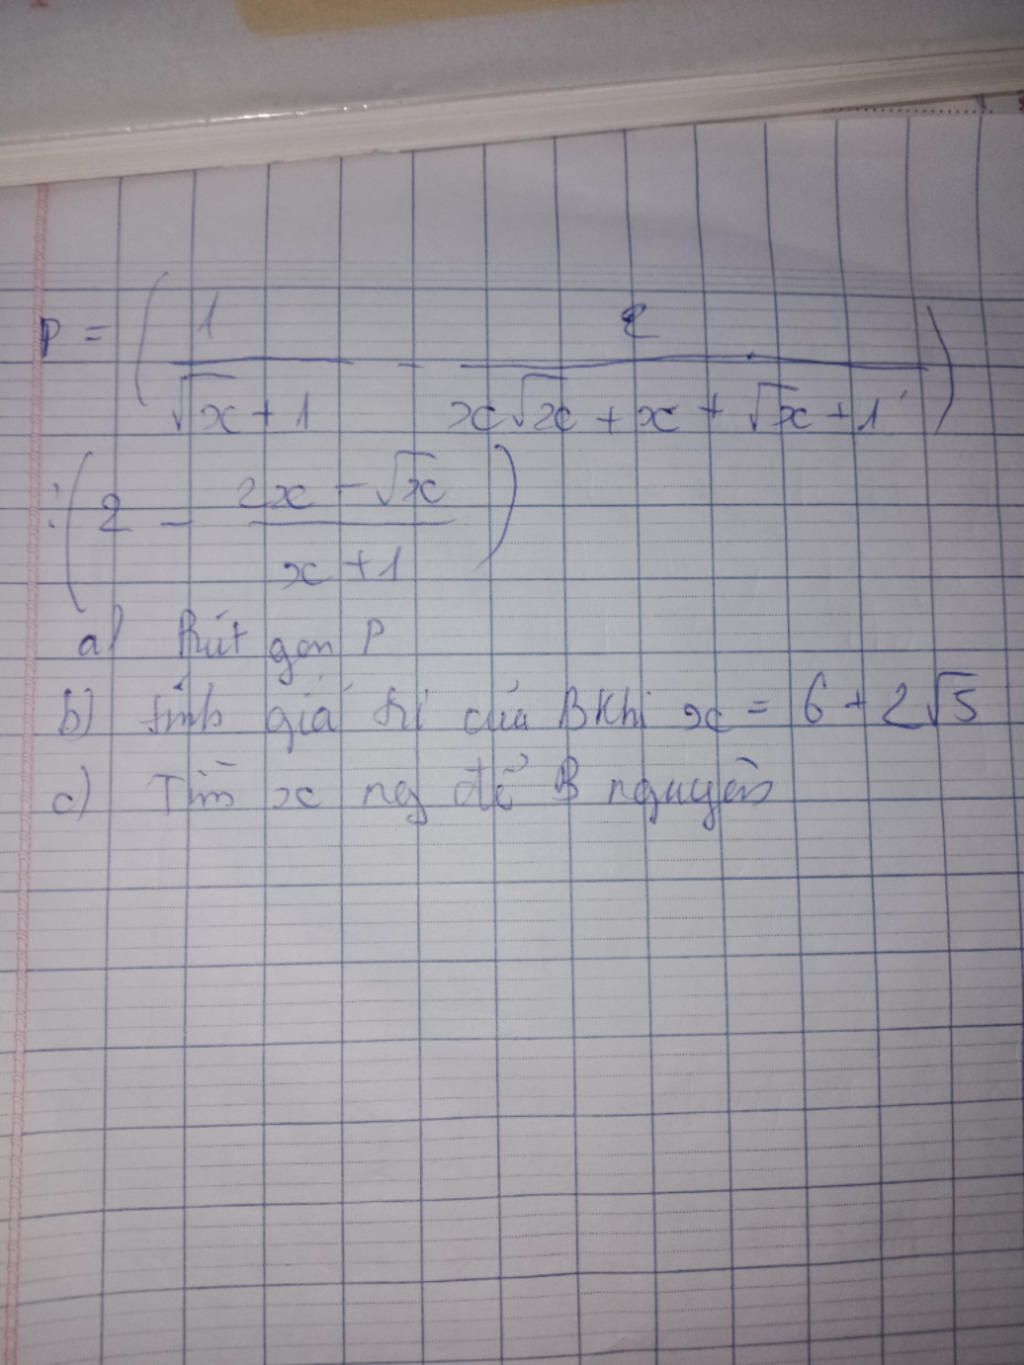 P = ( 1 / (√x + 1) - 2 / (x√x + x + √x + 1) )
: ( 2 - (2x - √x) / (x + 1) )
a) Rút gọn P
b) tính giá trị của B Khi x = 6 + 2√5
c) Tìm x ng để B nguyên